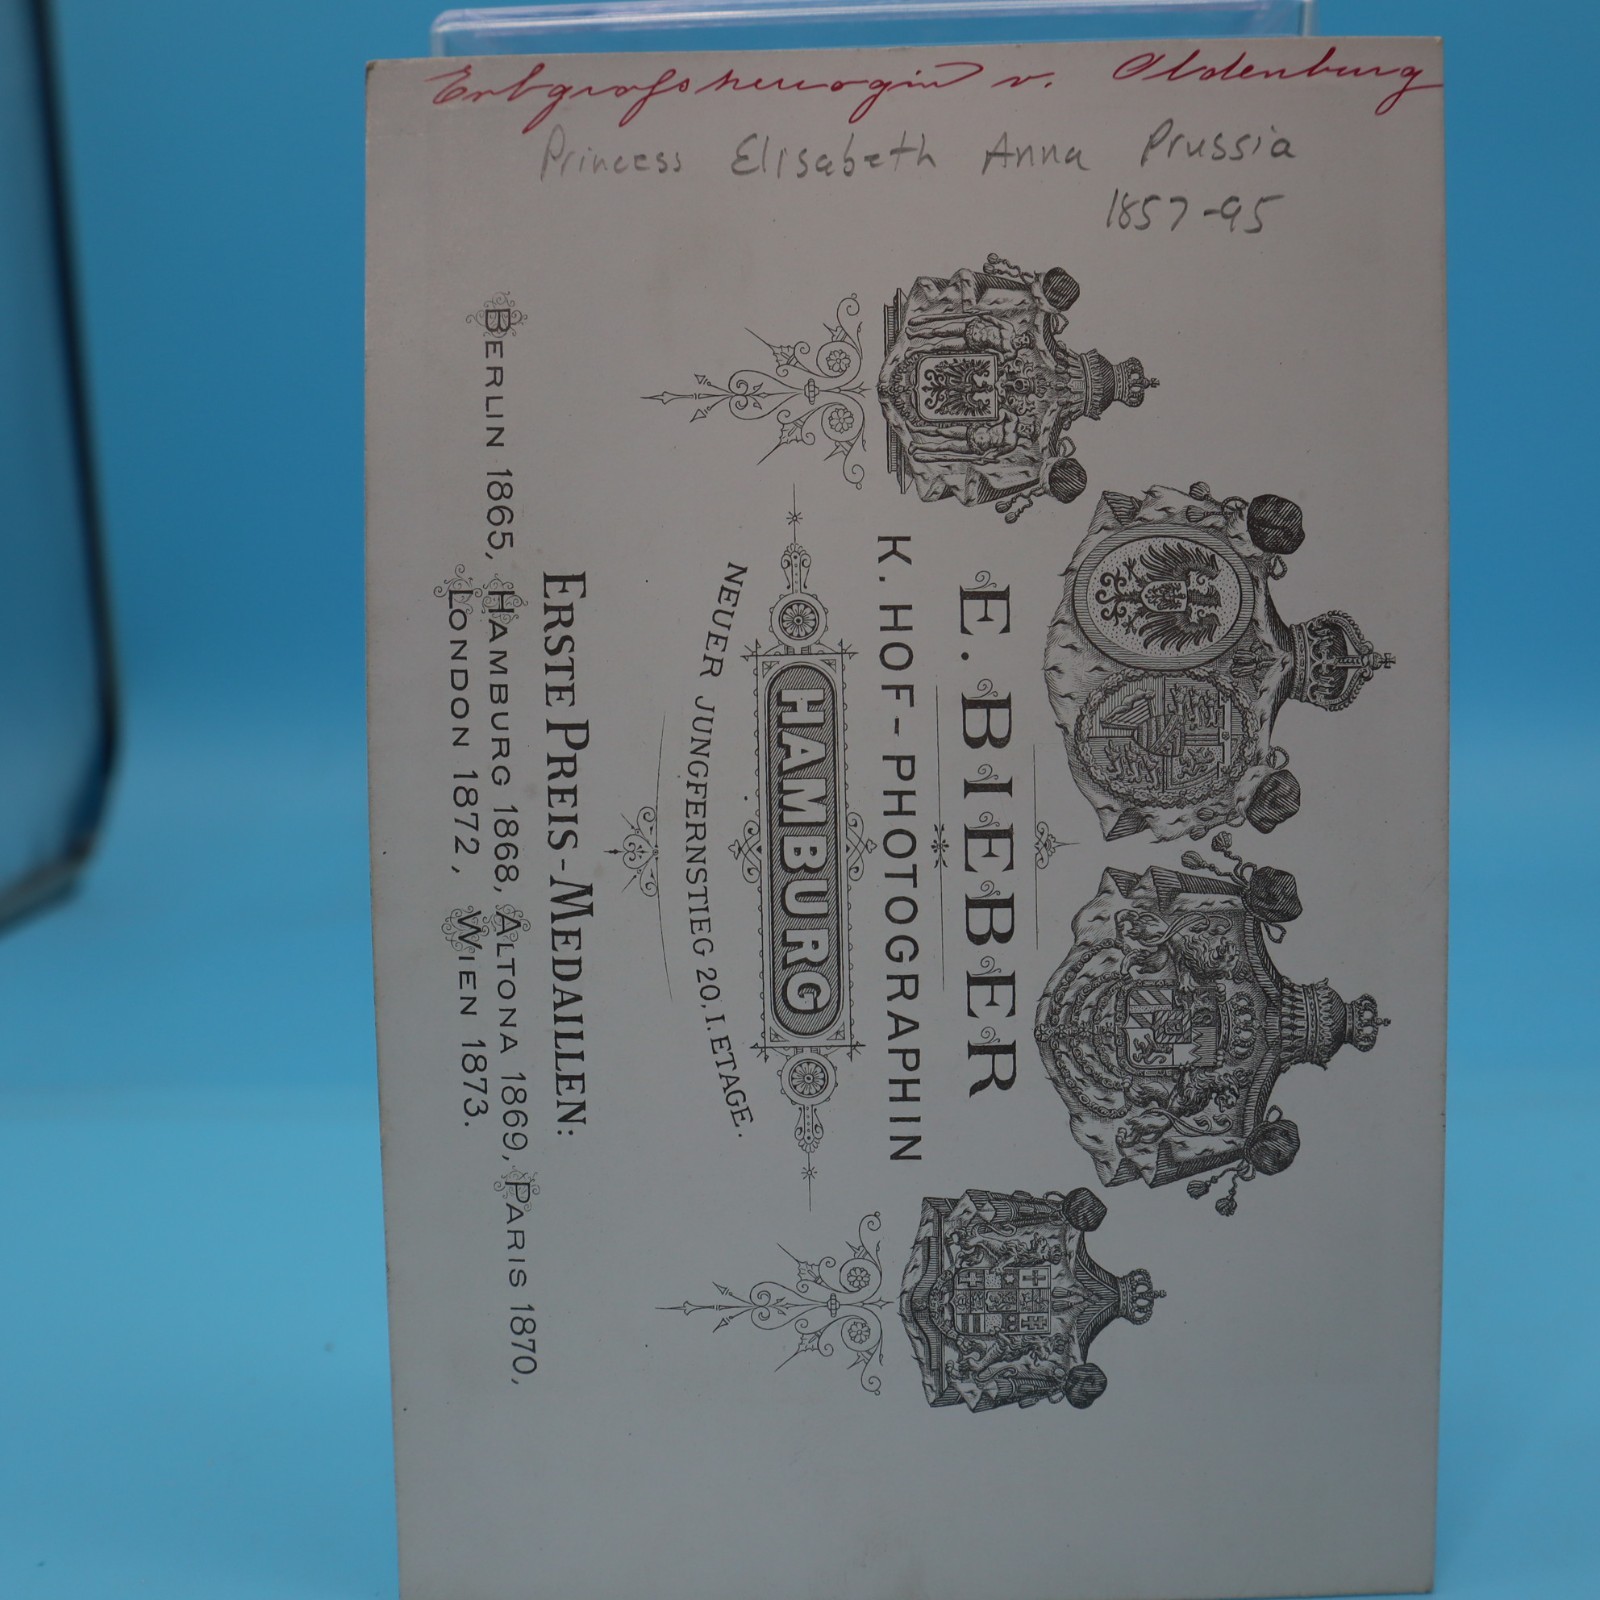 Erbgrossherzogin v. Oldenburg
Princess Elisabeth Anna Prussia
1857-95
E. BIEBER
K. HOF-PHOTOGRAPHIN
HAMBURG
NEUER JUNGFERNSTIEG 20. I. ETAGE.
ERSTE PREIS-MEDAILLEN:
BERLIN 1865, HAMBURG 1868, ALTONA 1869, PARIS 1870,
LONDON 1872, WIEN 1873.